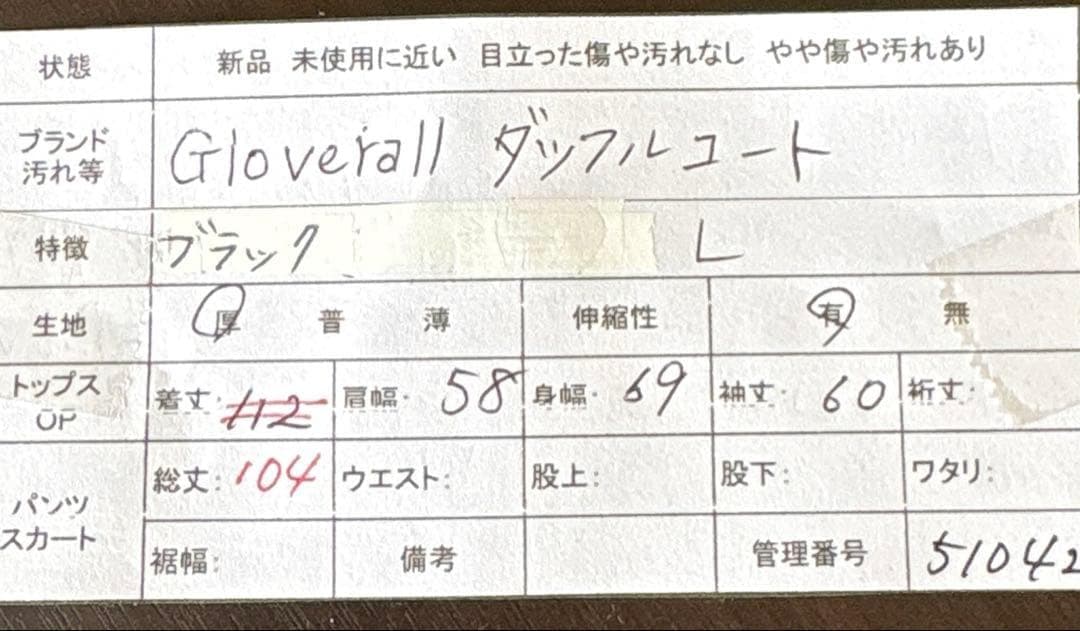 状態 新品 未使用に近い 目立った傷や汚れなし やや傷や汚れあり
ブランド
汚れ等 Gloverall ダッフルコート
特徴 ブラック L
生地 厚 普 薄 伸縮性 有 無
トップス
OP 着丈: 112 肩幅: 58 身幅: 69 袖丈: 60 裄丈:
パンツ
スカート 総丈: 104 ウエスト: 股上: 股下: ワタリ:
裾幅: 備考 管理番号 51042